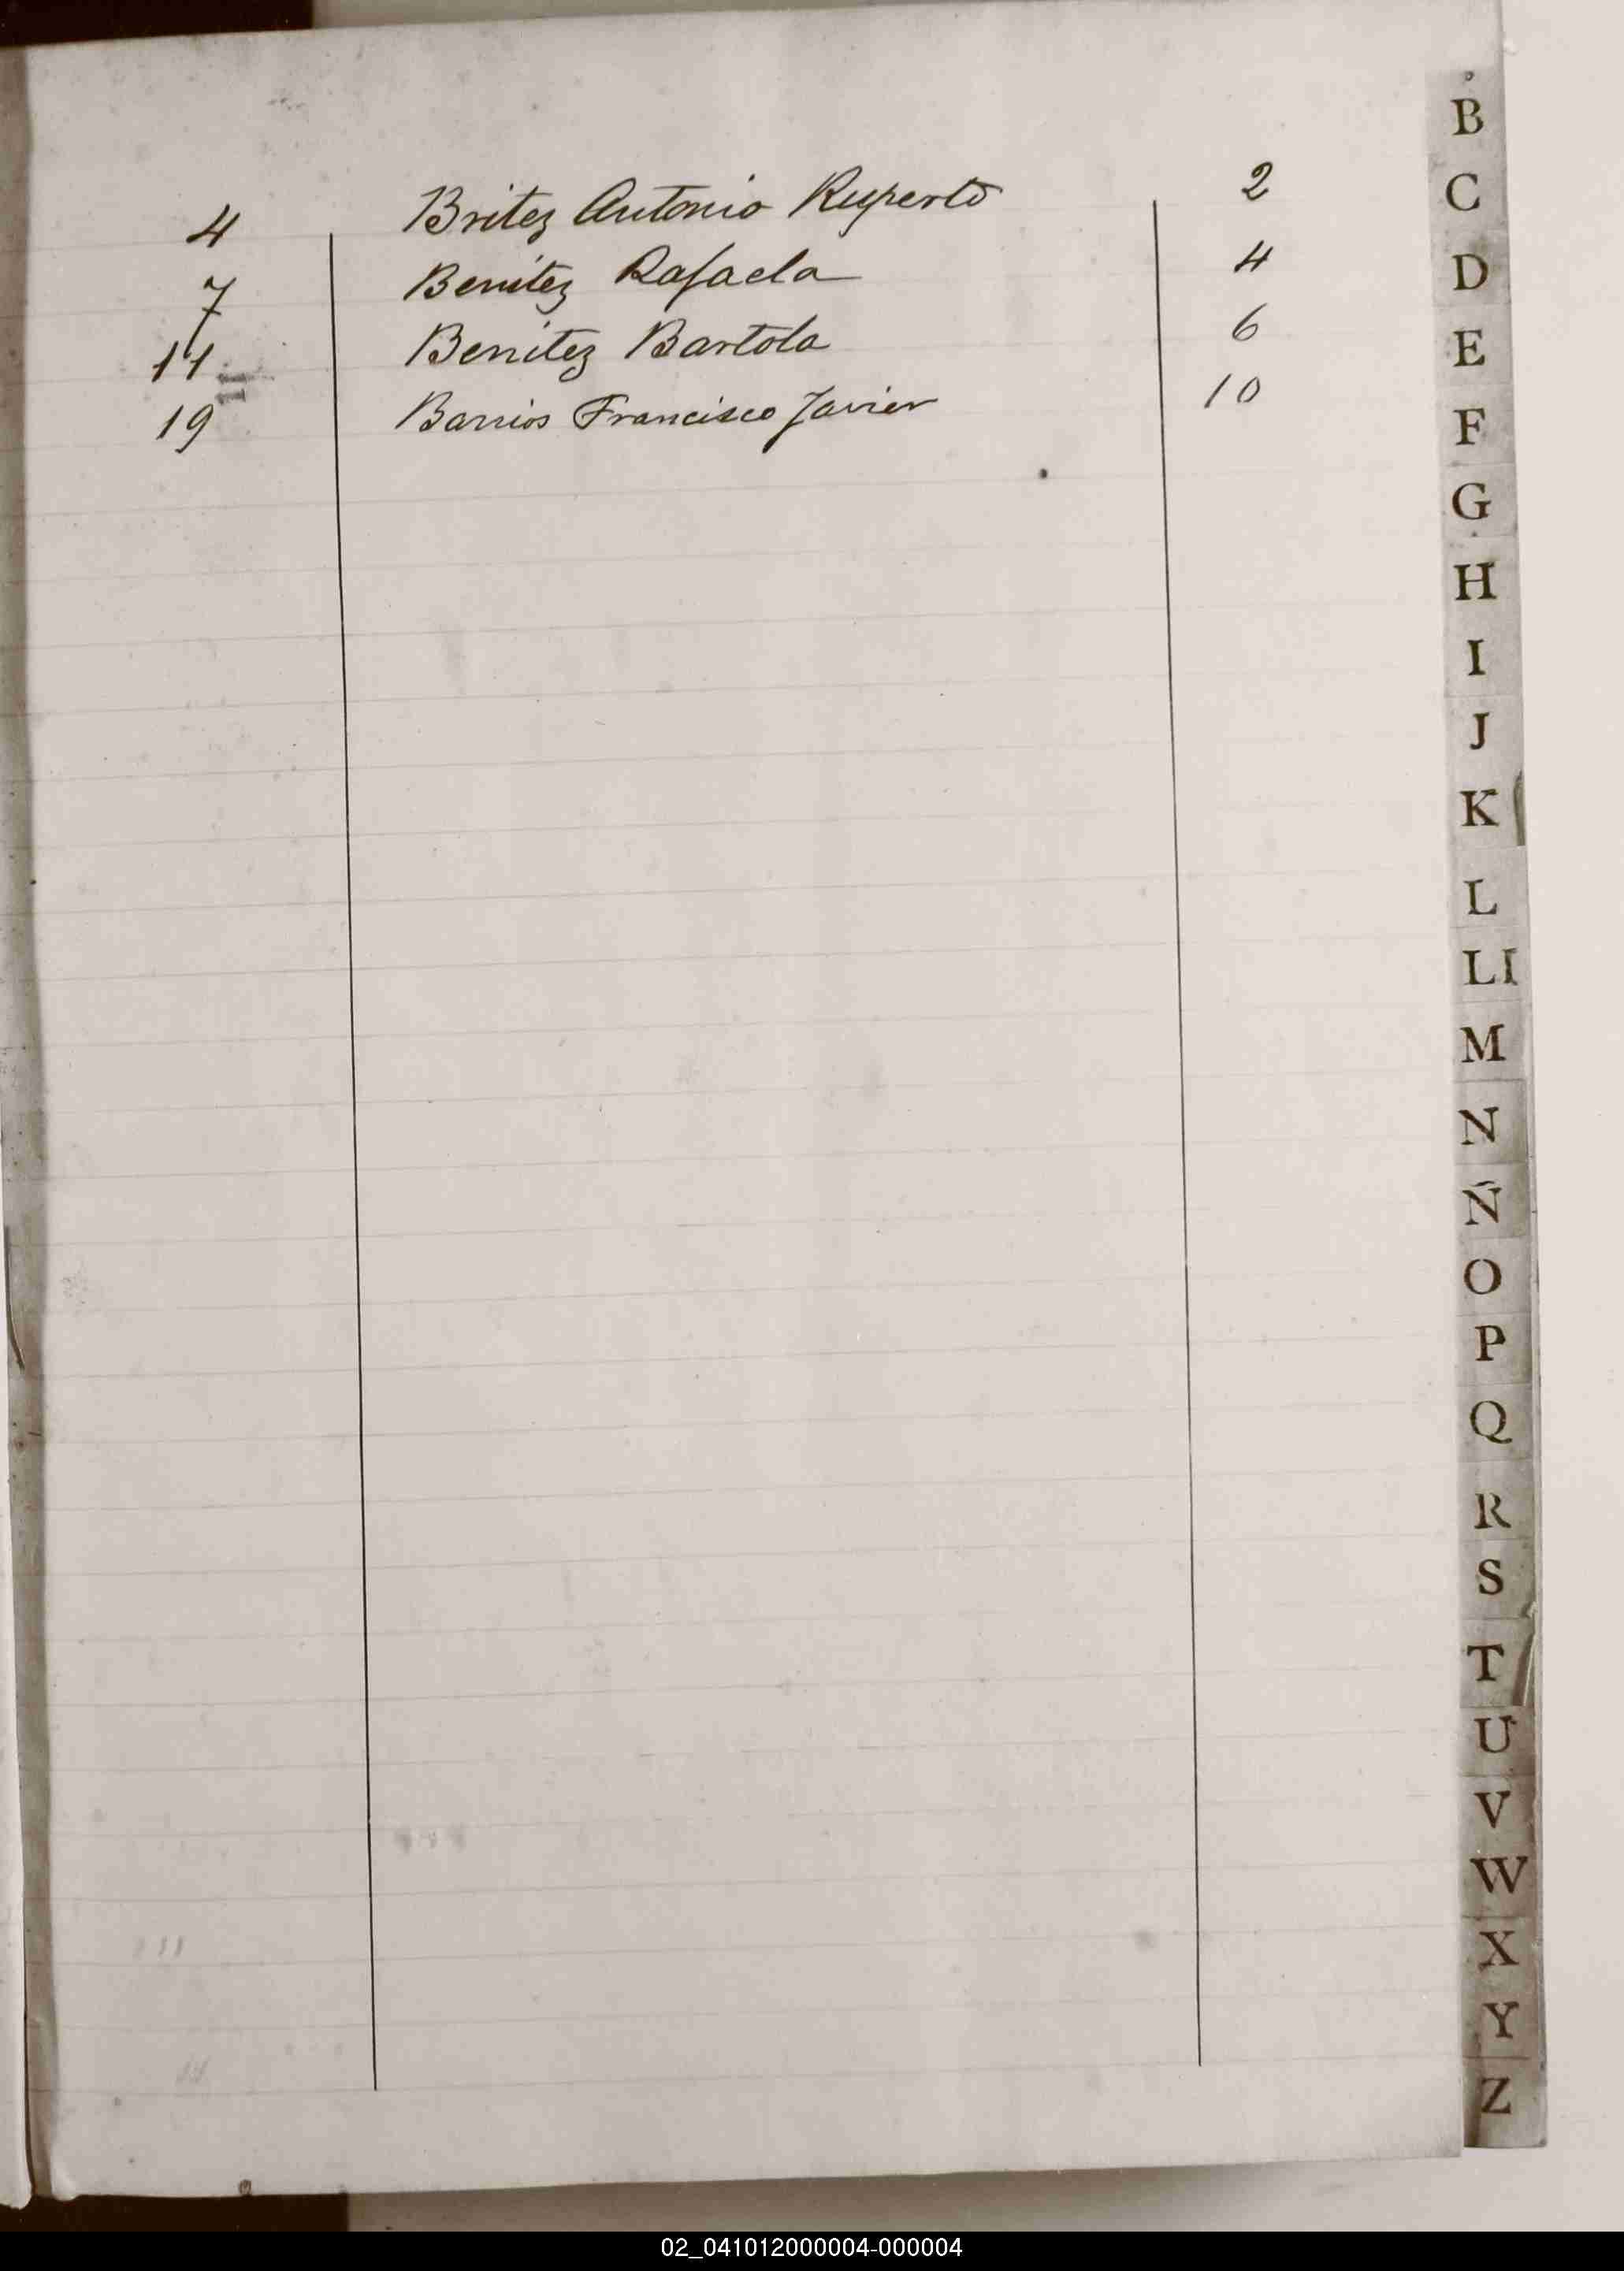 4 Britez Antonio Ruperto 2
7 Benitez Rafaela 4
11 Benitez Bartola 6
19 Barrios Francisco Javier 10
B
C
D
E
F
G
H
I
J
K
L
LI
M
N
Ñ
O
P
Q
R
S
T
U
V
W
X
Y
Z
02_041012000004-000004